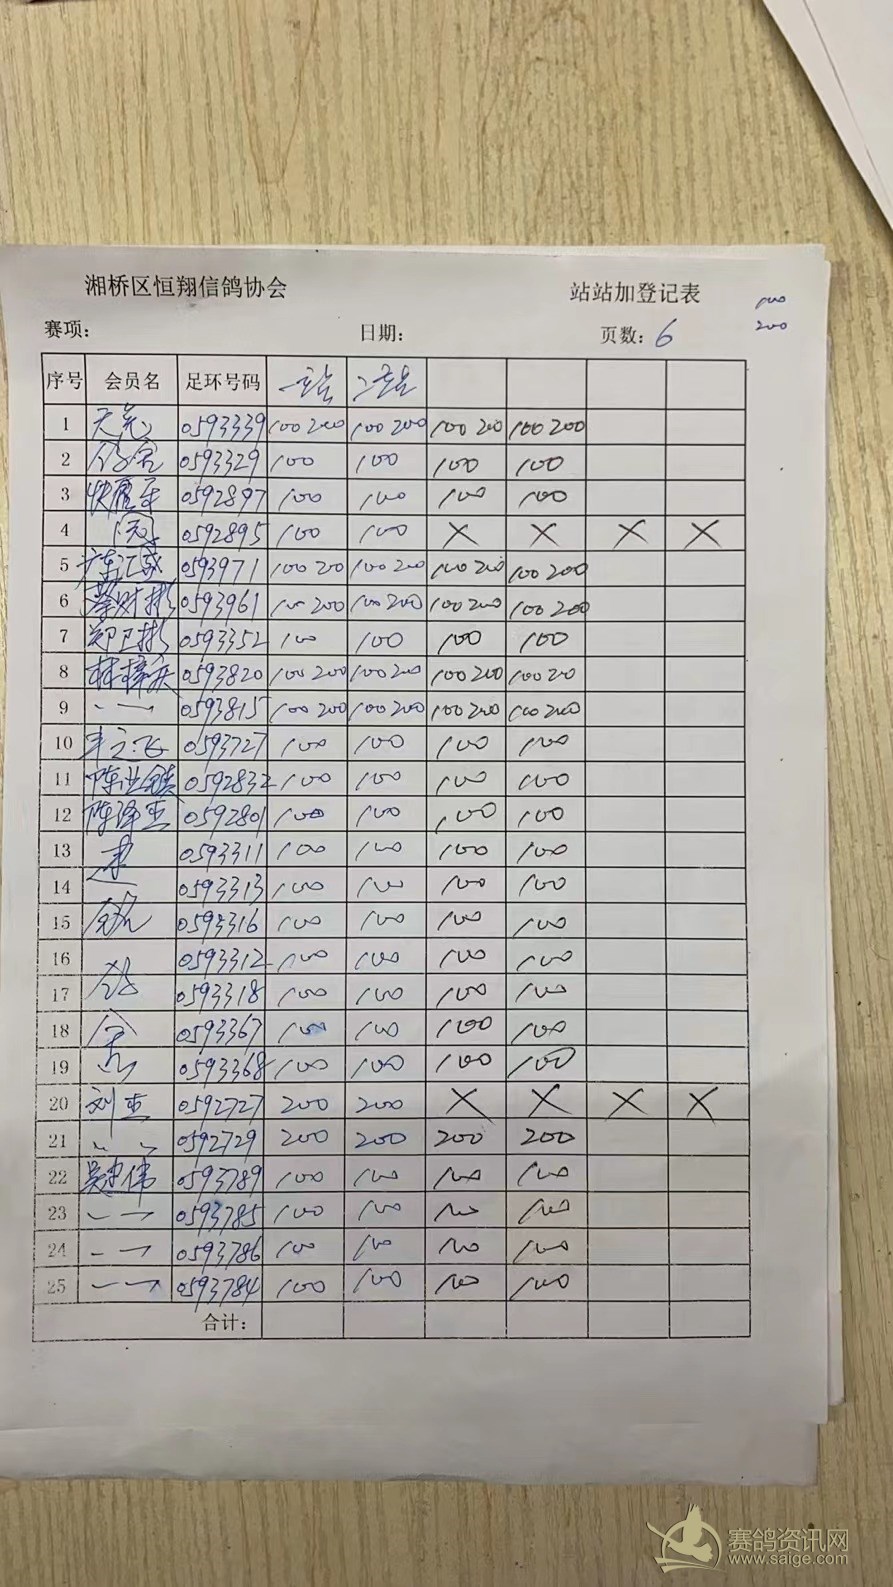 湘桥区恒翔信鸽协会 站站加登记表 100
赛项: 日期: 页数: 6 200
序号 会员名 足环号码 一站 二站
1 0593339 100 200 100 200 100 200 100 200
2 0593329 100 100 100 100
3 0592897 100 100 100 100
4 0592895 100 100 X X X X
5 0593971 100 200 100 200 100 200 100 200
6 蔡财彬 0593961 100 200 100 200 100 200 100 200
7 郑卫彬 0593352 100 100 100 100
8 林梓庆 0593820 100 200 100 200 100 200 100 200
9 0593815 100 200 100 200 100 200 100 200
10 0593727 100 100 100 100
11 0592832 100 100 100 100
12 陈泽杰 0592801 100 100 100 100
13 0593311 100 100 100 100
14 0593313 100 100 100 100
15 0593316 100 100 100 100
16 0593312 100 100 100 100
17 0593318 100 100 100 100
18 0593367 100 100 100 100
19 0593368 100 100 100 100
20 刘杰 0592727 200 200 X X X X
21 0592729 200 200 200 200
22 吴忠伟 0593789 100 100 100 100
23 0593785 100 100 100 100
24 0593786 100 100 100 100
25 0593784 100 100 100 100
合计:
赛鸽资讯网
www.saige.com